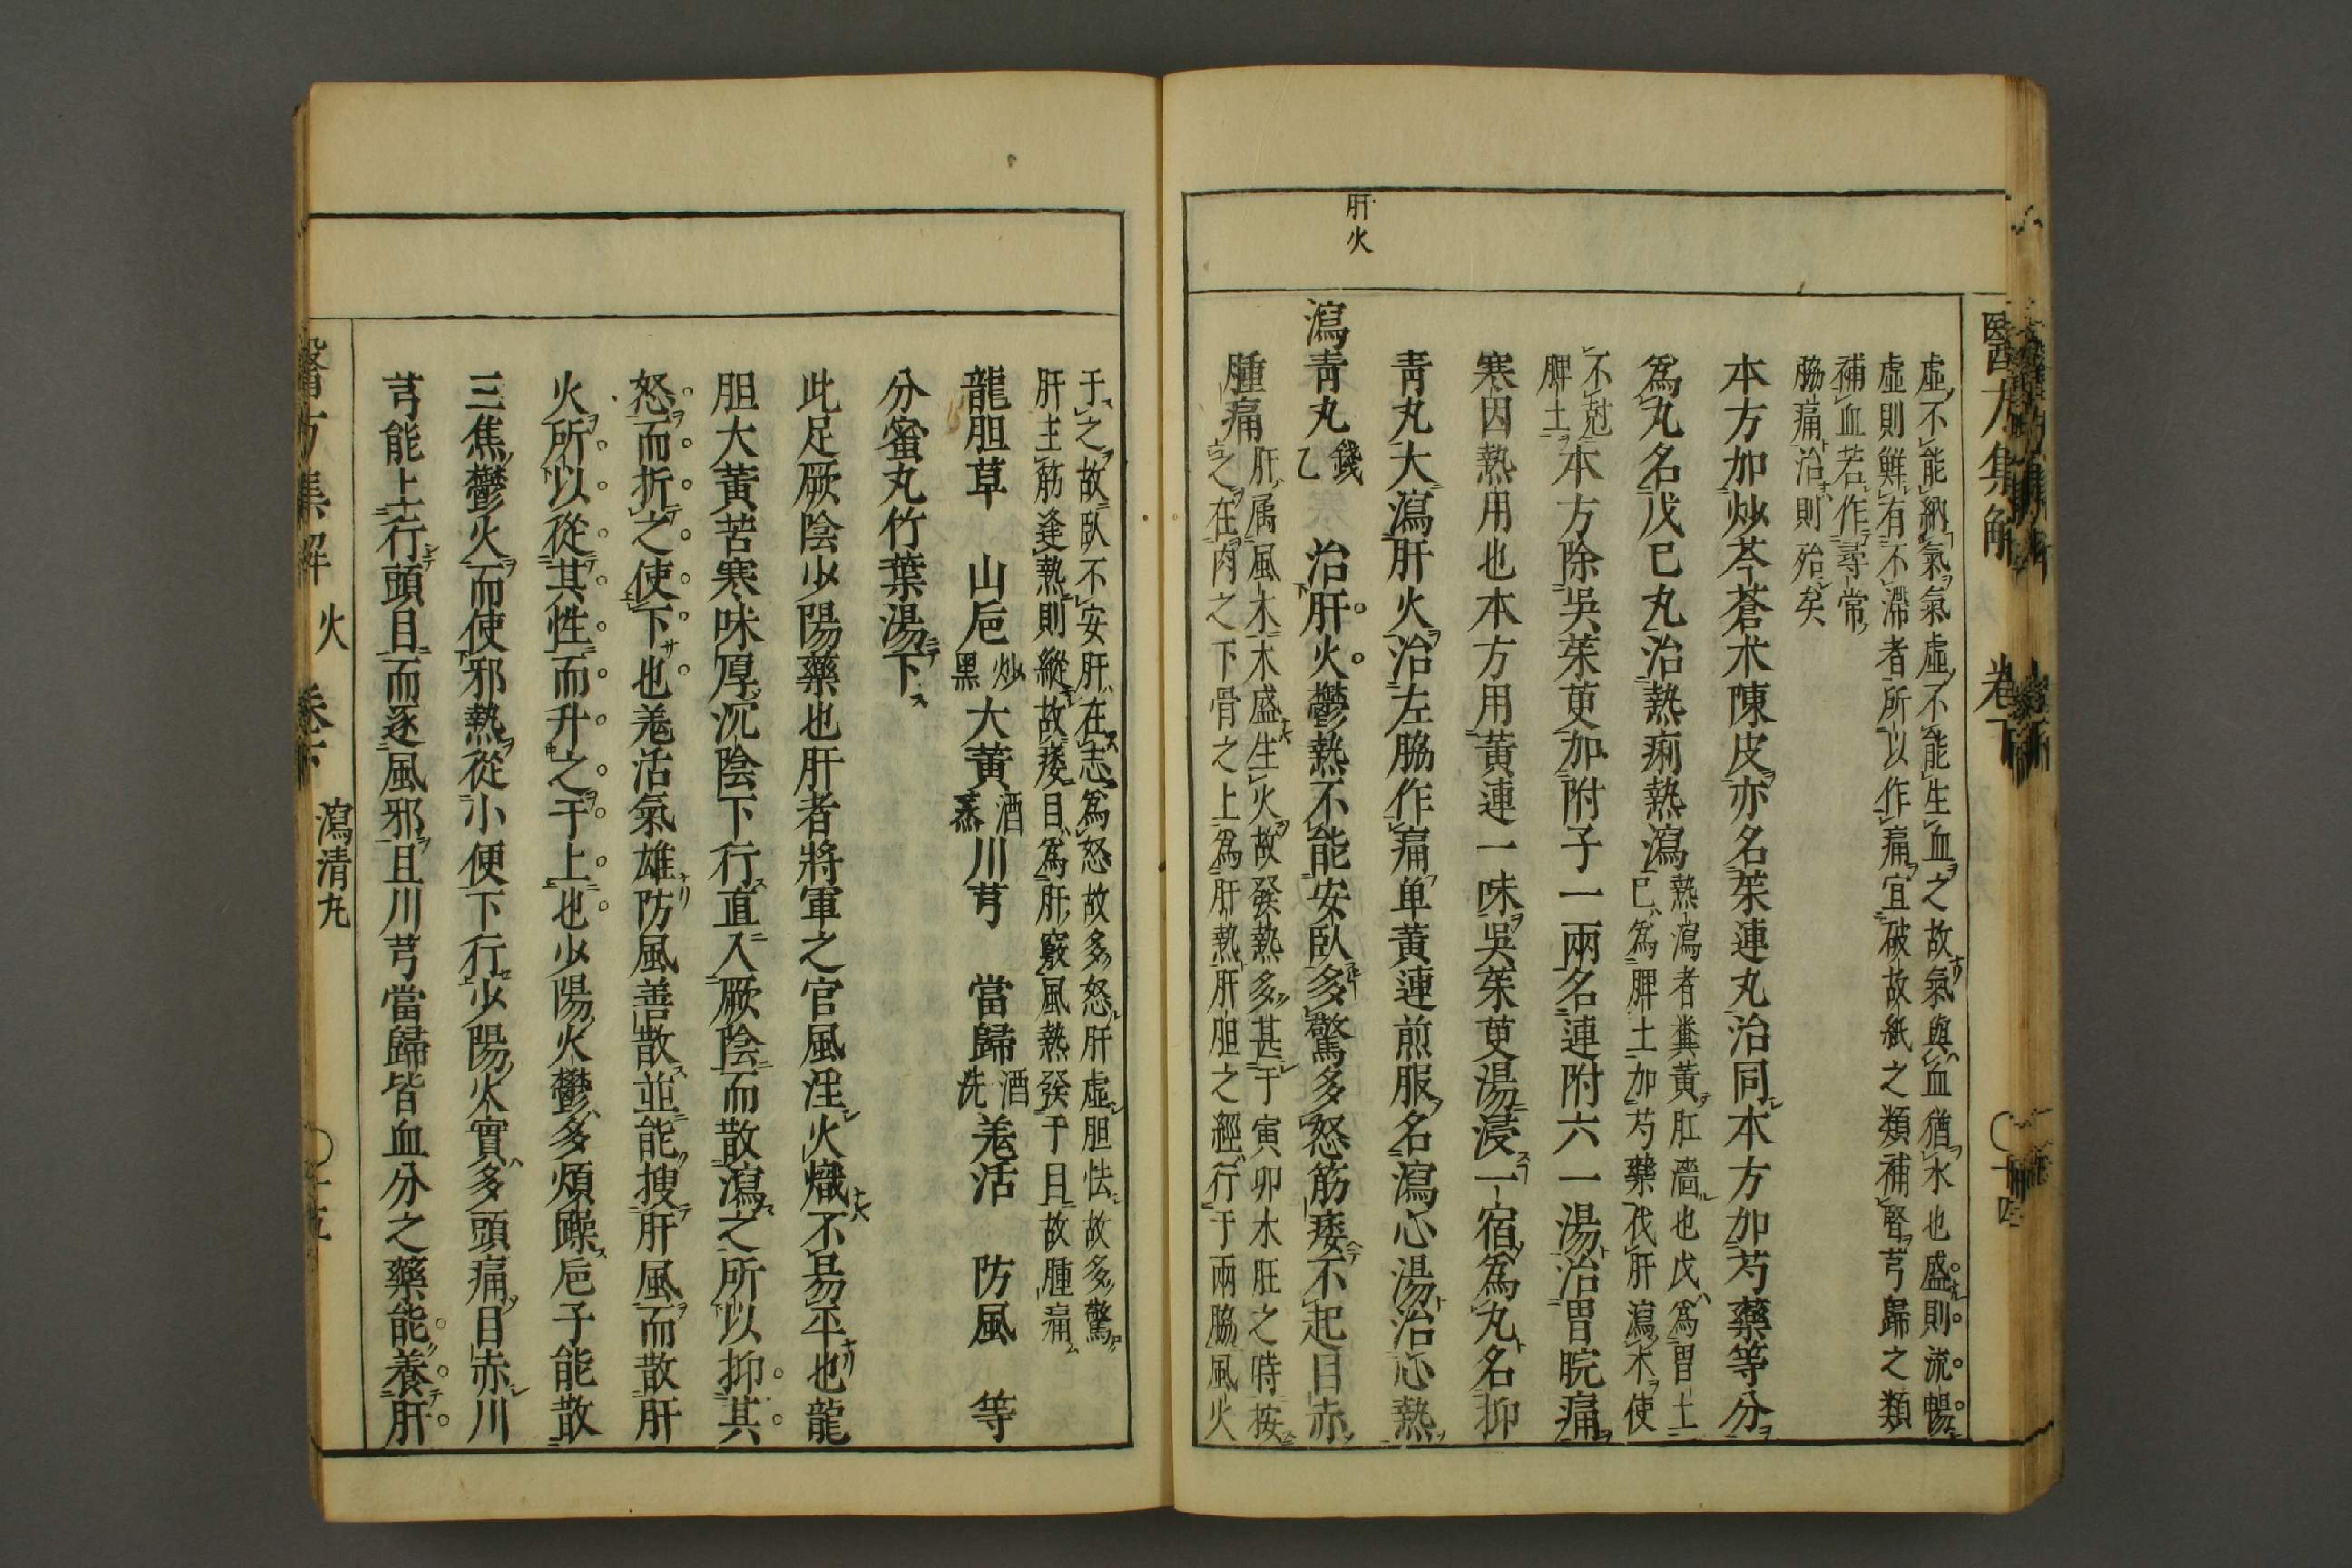 醫方集解 卷下
虛不能納氣氣虛不能生血之故氣與血猶水也盛則流暢
虛則鮮有不滯者所以作痛宜破故紙之類補腎芎歸之類
補血若作尋常
脇痛治則殆矣
本方加炒芩蒼朮陳皮亦名茱連丸治同本方加芍藥等分
為丸名戊已丸治熱痢熱瀉
熱瀉者糞黃肛濇也戊為胃土
已為脾土加芍藥伐肝瀉木使
不尅
脾土
本方除吳茱萸加附子一兩名連附六一湯治胃脘痛
寒因熱用也本方用黃連一味吳茱萸湯浸一宿為丸名抑
青丸大瀉肝火治左脇作痛单黃連煎服名瀉心湯治心熱
肝火
瀉青丸
錢
乙
治肝火鬱熱不能安臥多驚多怒筋痿不起目赤
腫痛
肝属風木木盛生火故發熱多甚于寅卯木旺之時按
之在肉之下骨之上為肝熱肝胆之經行于兩脇風火
于之故臥不安肝在志為怒故多怒肝虛胆怯故多驚
肝主筋逢熱則縱故痿目為肝竅風熱發于目故腫痛
龍胆草 山巵
炒
黑
大黃
酒
蒸
川芎 當歸
酒
洗
羗活 防風 等
分蜜丸竹葉湯下
此足厥陰少陽藥也肝者將軍之官風淫火熾不易平也龍
胆大黃苦寒味厚沉陰下行直入厥陰而散瀉之所以抑其
怒而折之使下也羗活氣雄防風善散並能搜肝風而散肝
火所以從其性而升之于上也少陽火鬱多煩躁巵子能散
三焦鬱火而使邪熱從小便下行少陽火實多頭痛目赤川
芎能上行頭目而逐風邪且川芎當歸皆血分之藥能養肝
醫方集解 火 卷下 瀉清丸 十五